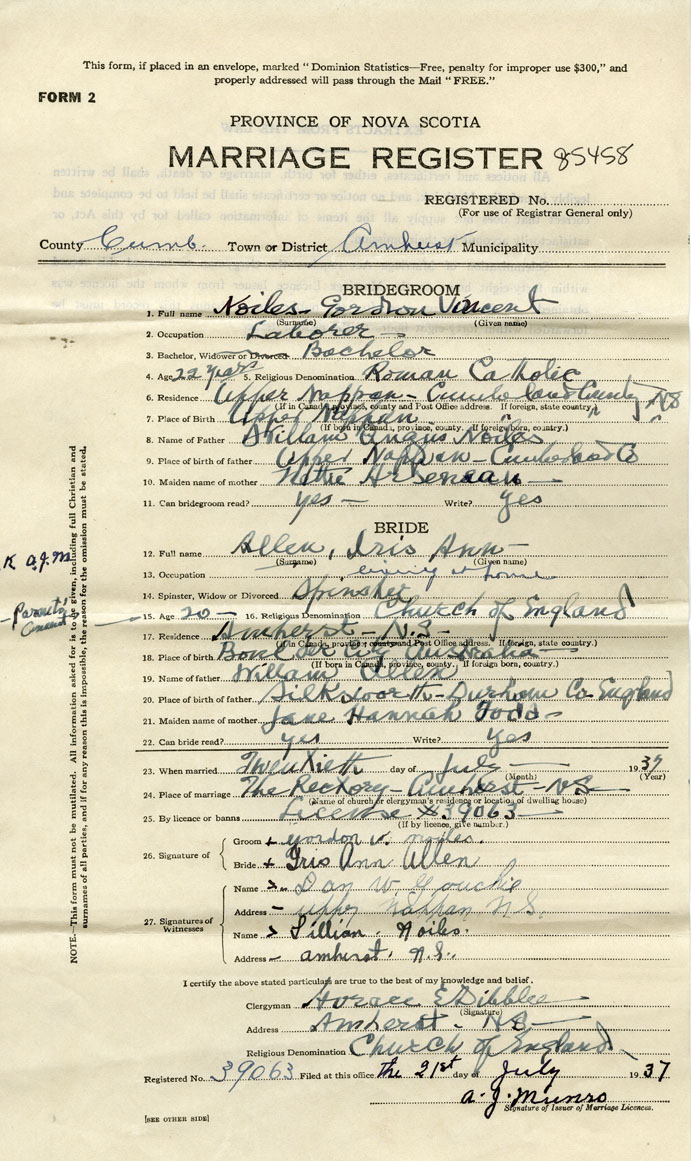 This form, if placed in an envelope, marked "Dominion Statistics—Free, penalty for improper use $300," and
properly addressed will pass through the Mail "FREE."
FORM 2
PROVINCE OF NOVA SCOTIA
MARRIAGE REGISTER 85458
REGISTERED No.
(For use of Registrar General only)
County Cumb. Town or District Amherst Municipality
BRIDEGROOM
1. Full name Noiles - Gordon Vincent
(Surname) (Given name)
2. Occupation Laborer
3. Bachelor, Widower or Divorced Bachelor
4. Age 22 years 5. Religious Denomination Roman Catholic
6. Residence Upper Nappan - Cumberland County NS
(If in Canada, province, county and Post Office address. If foreign, state country.)
7. Place of Birth Upper Nappan " "
(If born in Canada, province, county. If foreign born, country.)
8. Name of Father William Angus Noiles
9. Place of birth of father Upper Nappan - Cumberland Co
10. Maiden name of mother Arseneau
11. Can bridegroom read? yes Write? yes
BRIDE
12. Full name Allen, Iris Ann
(Surname) (Given name)
13. Occupation living at home
14. Spinster, Widow or Divorced Spinster
15. Age 20 16. Religious Denomination Church of England
17. Residence Amherst - N.S.
(If in Canada, province, county and Post Office address. If foreign, state country.)
18. Place of birth Australia
(If born in Canada, province, county. If foreign born, country.)
19. Name of father William Allen
20. Place of birth of father Silksworth - Durham Co England
21. Maiden name of mother Jane Hannah Todd
22. Can bride read? yes Write? Yes
23. When married Twentieth day of July 1937
(Month) (Year)
24. Place of marriage The Rectory - Amherst - NS
(Name of church or clergyman's residence or location of dwelling house)
25. By licence or banns License #39063
(If by licence, give number.)
26. Signature of
Groom + Gordon V. Noiles.
Bride + Iris Ann Allen
27. Signatures of Witnesses
Name Dan W. Gouchie
Address - upper Nappan N.S.
Name Lillian Noiles.
Address - amherst, N.S.
I certify the above stated particulars are true to the best of my knowledge and belief.
Clergyman Horace E Dibblee
(Signature)
Address Amherst - NS
Religious Denomination Church of England
Registered No. 39063 Filed at this office the 21st day of July 1937
A. J. Munro
Signature of Issuer of Marriage Licences.
[SEE OTHER SIDE]
NOTE.—This form must not be mutilated. All information asked for is to be given, including full Christian and
surnames of all parties, and if for any reason this is impossible, the reason for the omission must be stated.
K A.J.M.
Parents'
Consent